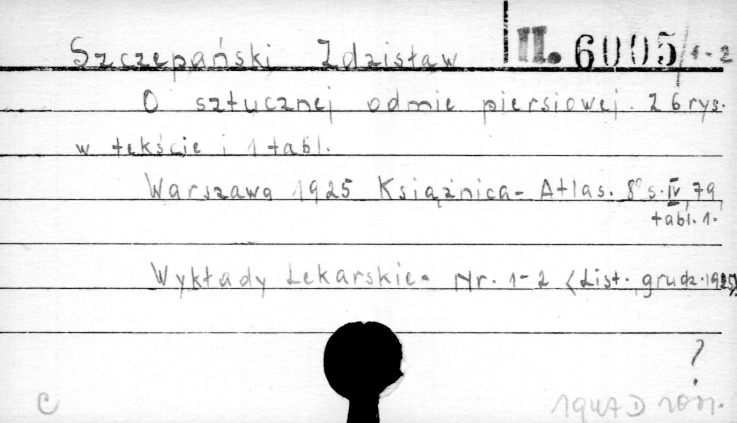 Szczepański Zdzisław II. 6005/1-2
O sztucznej odmie piersiowej. Z 6 rys.
w tekście i 1 tabl.
Warszawa 1925 Książnica-Atlas. 8° s. IV, 79,
tabl. 1.
Wykłady Lekarskie. Nr. 1-2 (List., grudz. 1925)
?
C 1947 D